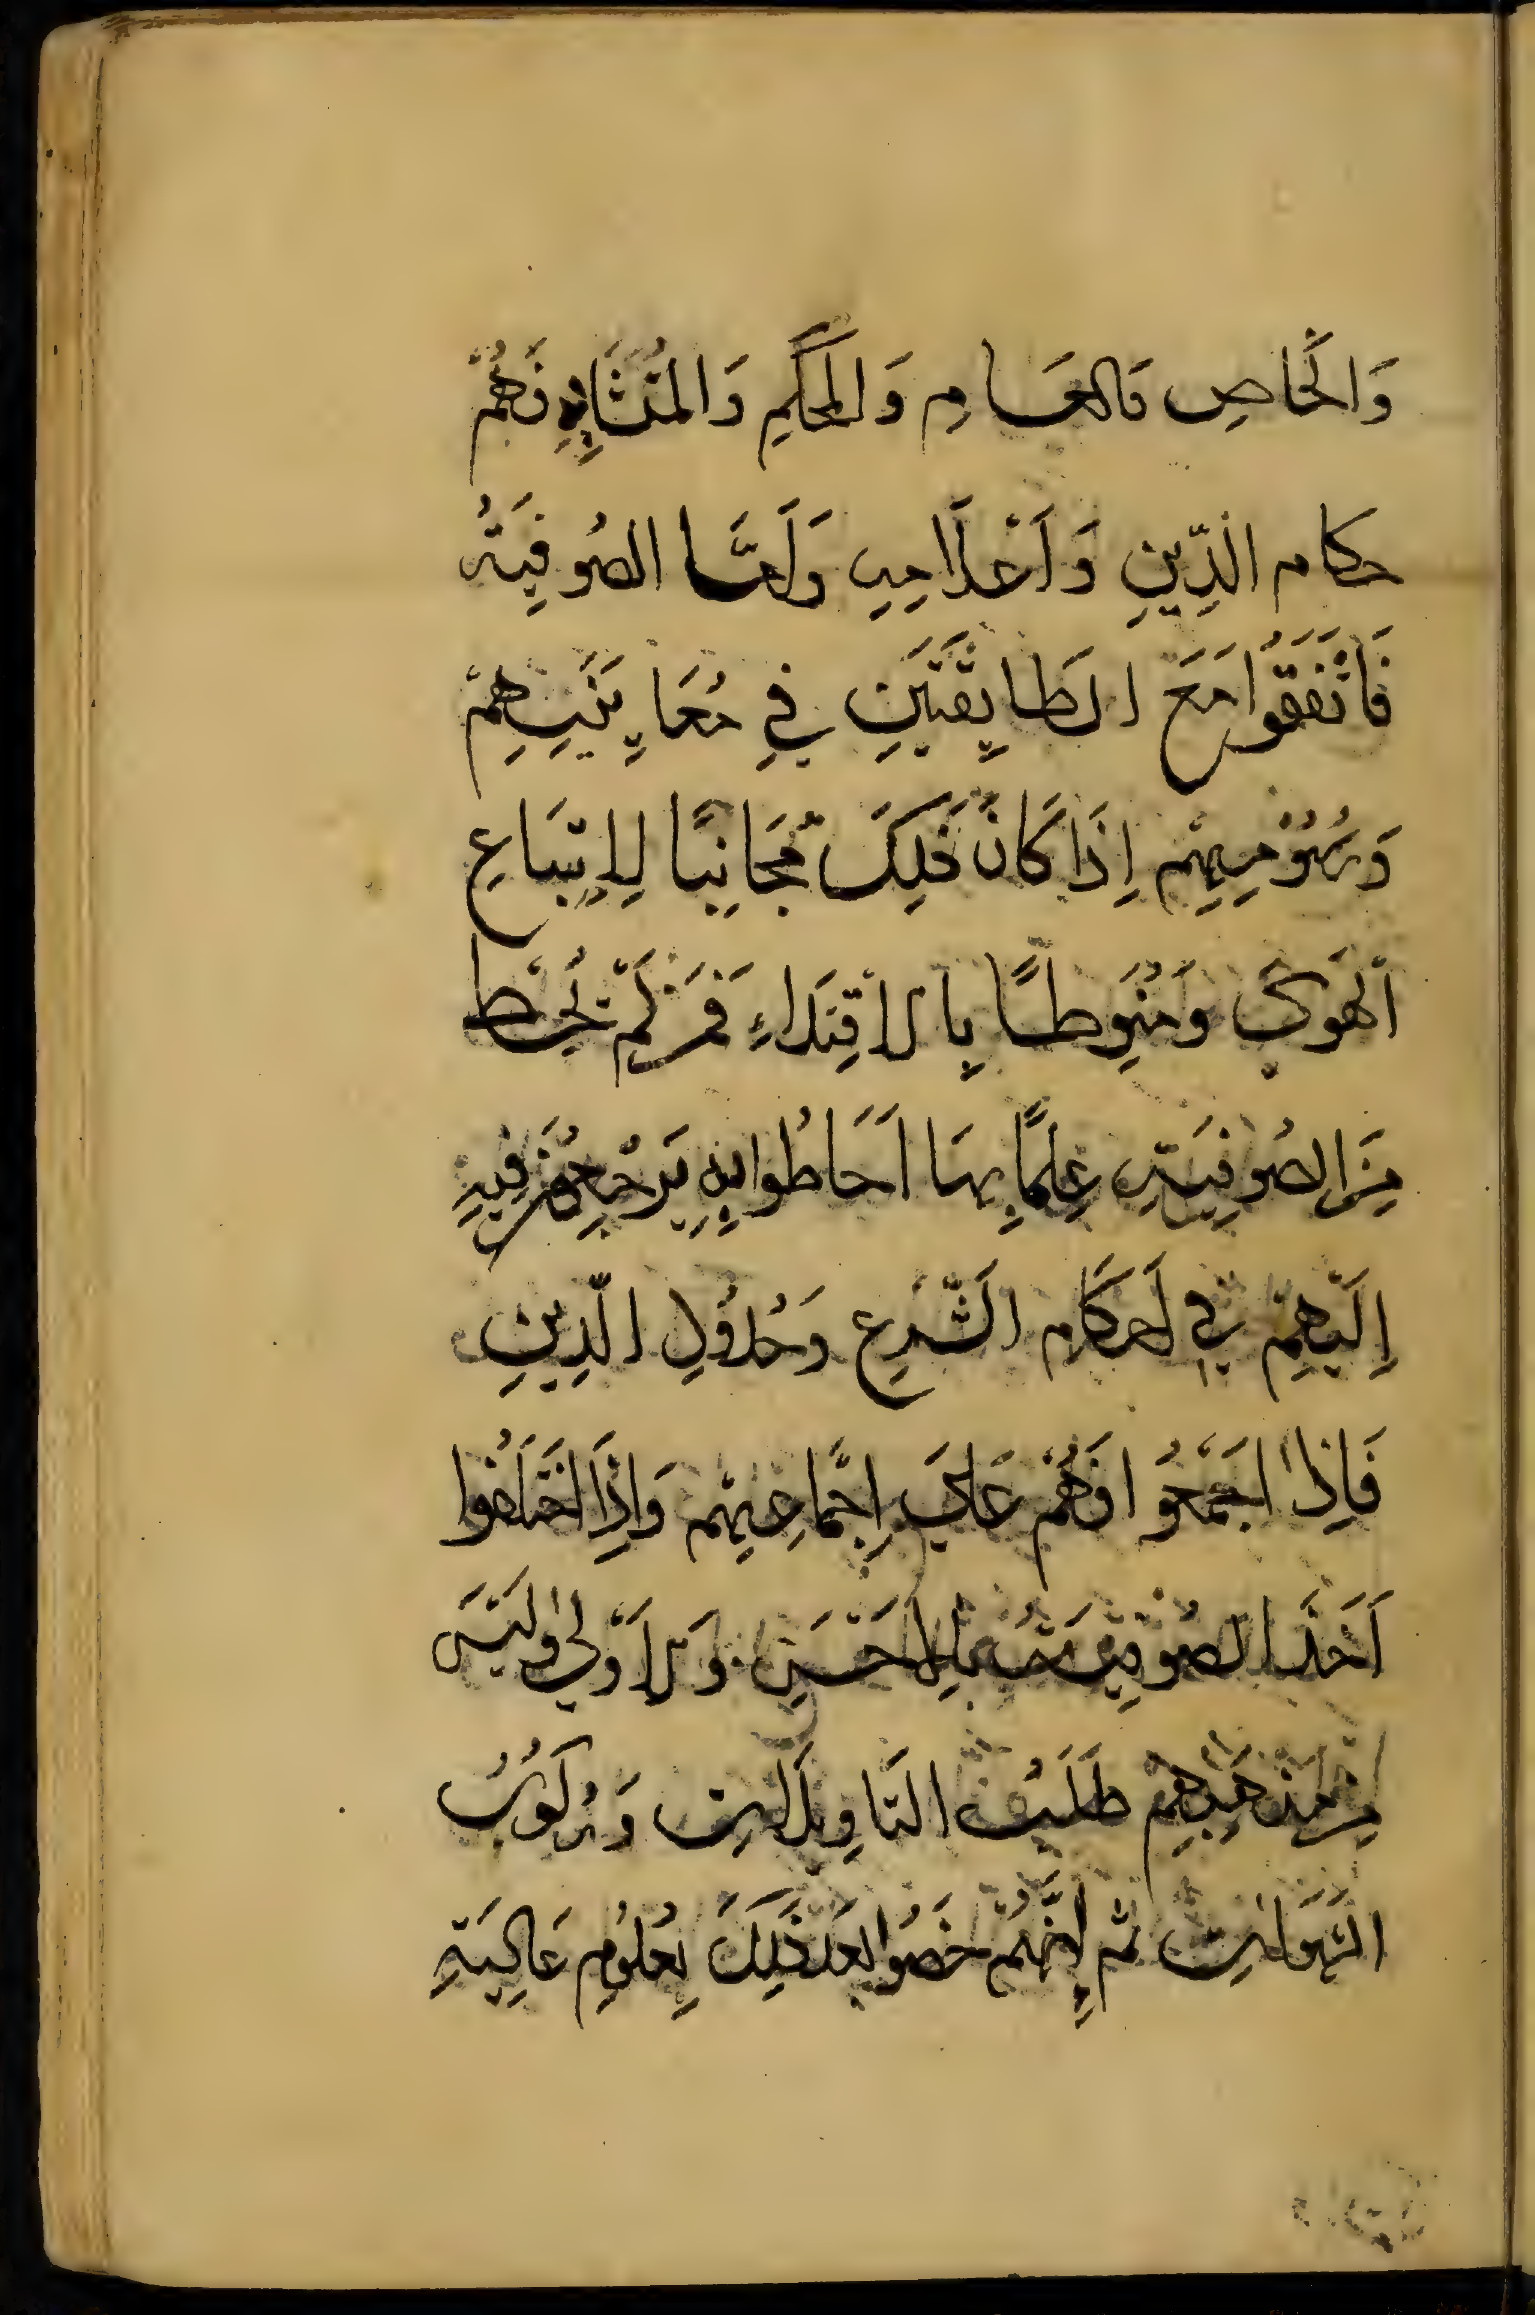 وَالْخَاصِ وَالعَامِ وَالمُحْكَمِ وَالمُتَشَابِهِ فَهُمْ
حكام الدِّينِ وَاَعْلَامِهِ وَاَمَّا الصُوفِيَةُ
فَاتَّفَقُوا مَعَ الطَايِفَتَيْنِ فِي مُعَايَنَتِهِمْ
وَرُسُوْمِهِمْ اِذَا كَانَ ذَلِكَ مُجَانِبًا لِاِتِّبَاعِ
اَلْهَوَى وَمَنُوطًا بِالاقْتِدَاءِ فَمَنْ لَمْ يُحِطْ
مِنَ الصُوفِيَةِ عِلْمًا بِمَا اَحَاطُوا بِهِ يَرْجِعُونَ فِيهِ
اِلَيْهِمْ فِي اَحْكَام الشَّرْعِ وَحُدُوْدِ الدِّينِ
فَاِذَا اجْتَمَعُوا فَهُمْ عَلَى اِجْمَاعِهِمْ وَاِذَا اخْتَلَفُوا
اَخَذَ الصُوفِيَةُ بِالاَحْسَنِ وَالاَوْلَى وَلَيْسَ
مِنْ مَذْهَبِهِمْ طَلَبُ التَاوِيلَاتِ وَرُكُوبُ
الشَهَوَاتِ ثم اِنَّهُمْ خَصُّوا بَعْدَ ذَلِكَ بِعُلُومٍ عَالِيَةٍ